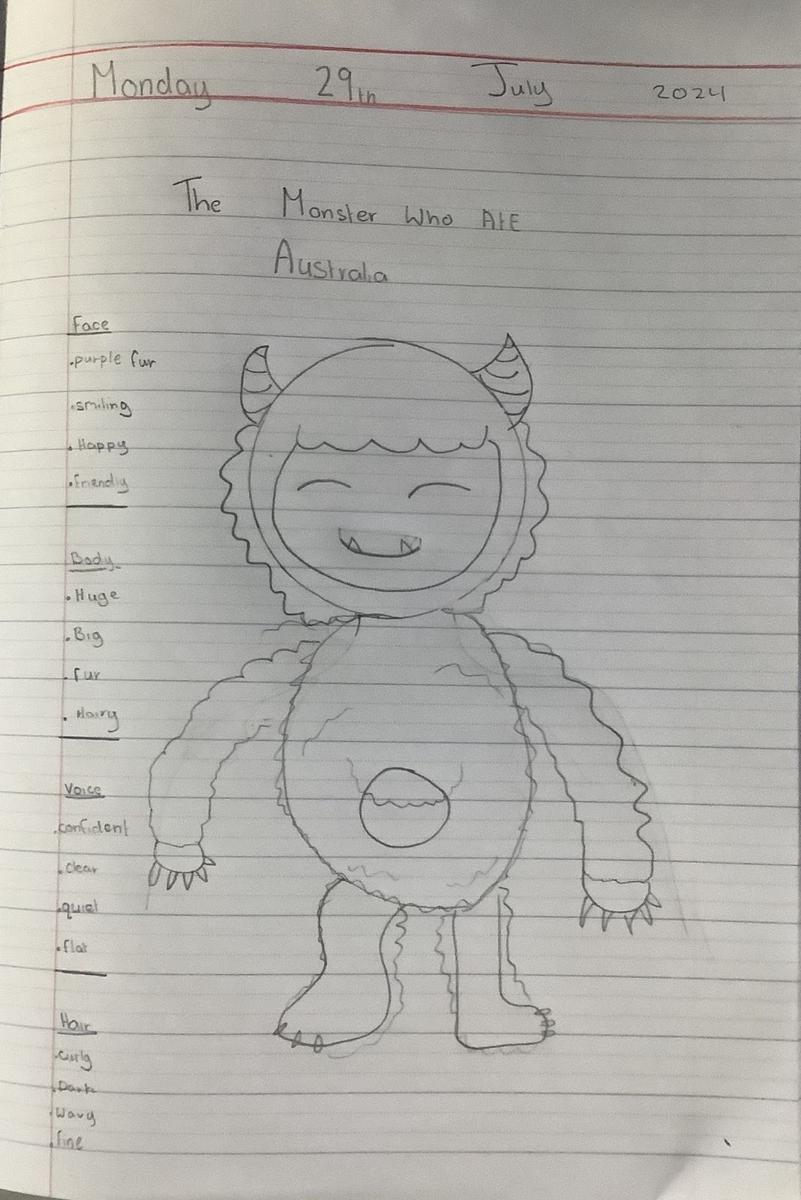 Monday 29th July 2024
The Monster Who AtE
Australia
Face
.purple fur
.smiling
. Happy
.friendly
Body
. Huge
. Big
. fur
. Hairy
Voice
.confident
. clear
.quiet
.flat
Hair
.curly
.Dark
wavy
.fine